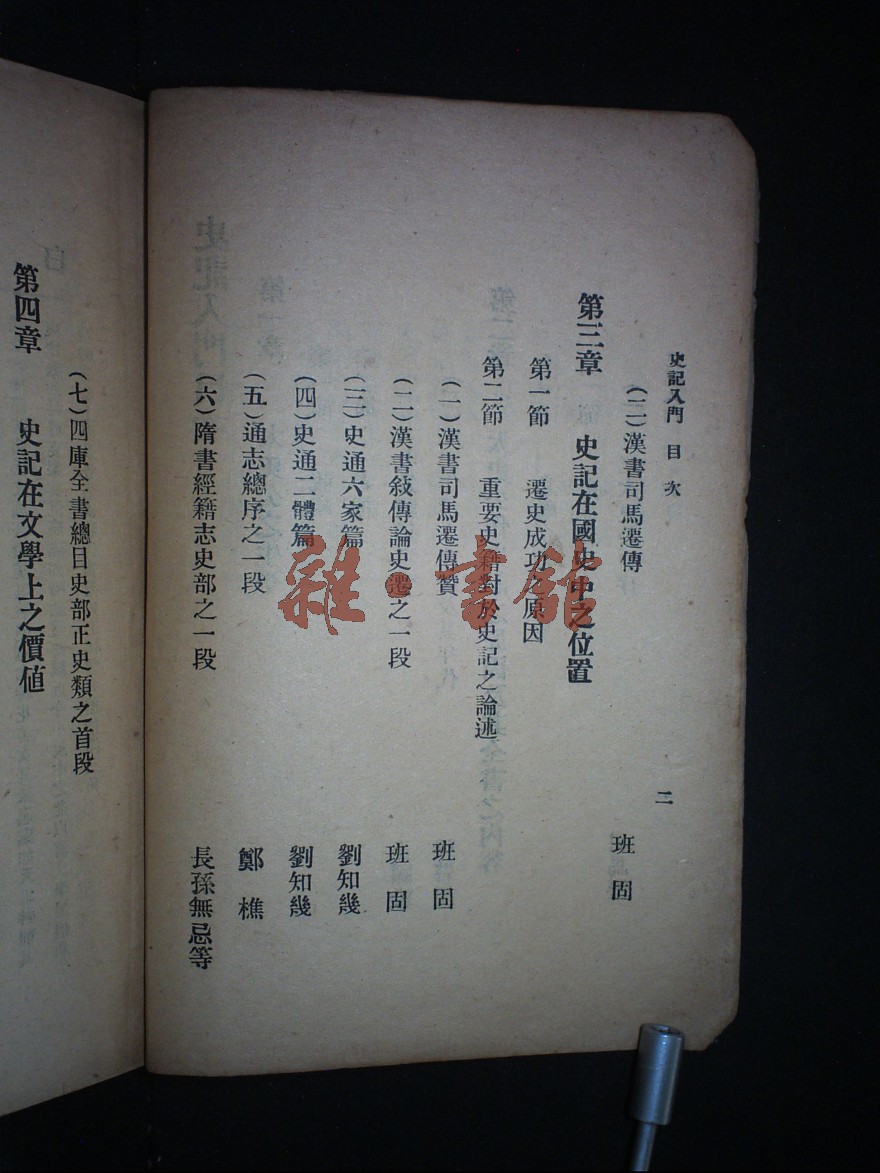 史記入門 目次
二
(二)漢書司馬遷傳 班固
第三章 史記在國史中之位置
第一節 遷史成功之原因
第二節 重要史籍對於史記之論述
(一)漢書司馬遷傳贊 班固
(二)漢書敍傳論史遷之一段 班固
(三)史通六家篇 劉知幾
(四)史通二體篇 劉知幾
(五)通志總序之一段 鄭樵
(六)隋書經籍志史部之一段 長孫無忌等
(七)四庫全書總目史部正史類之首段
第四章 史記在文學上之價値
雜·書館